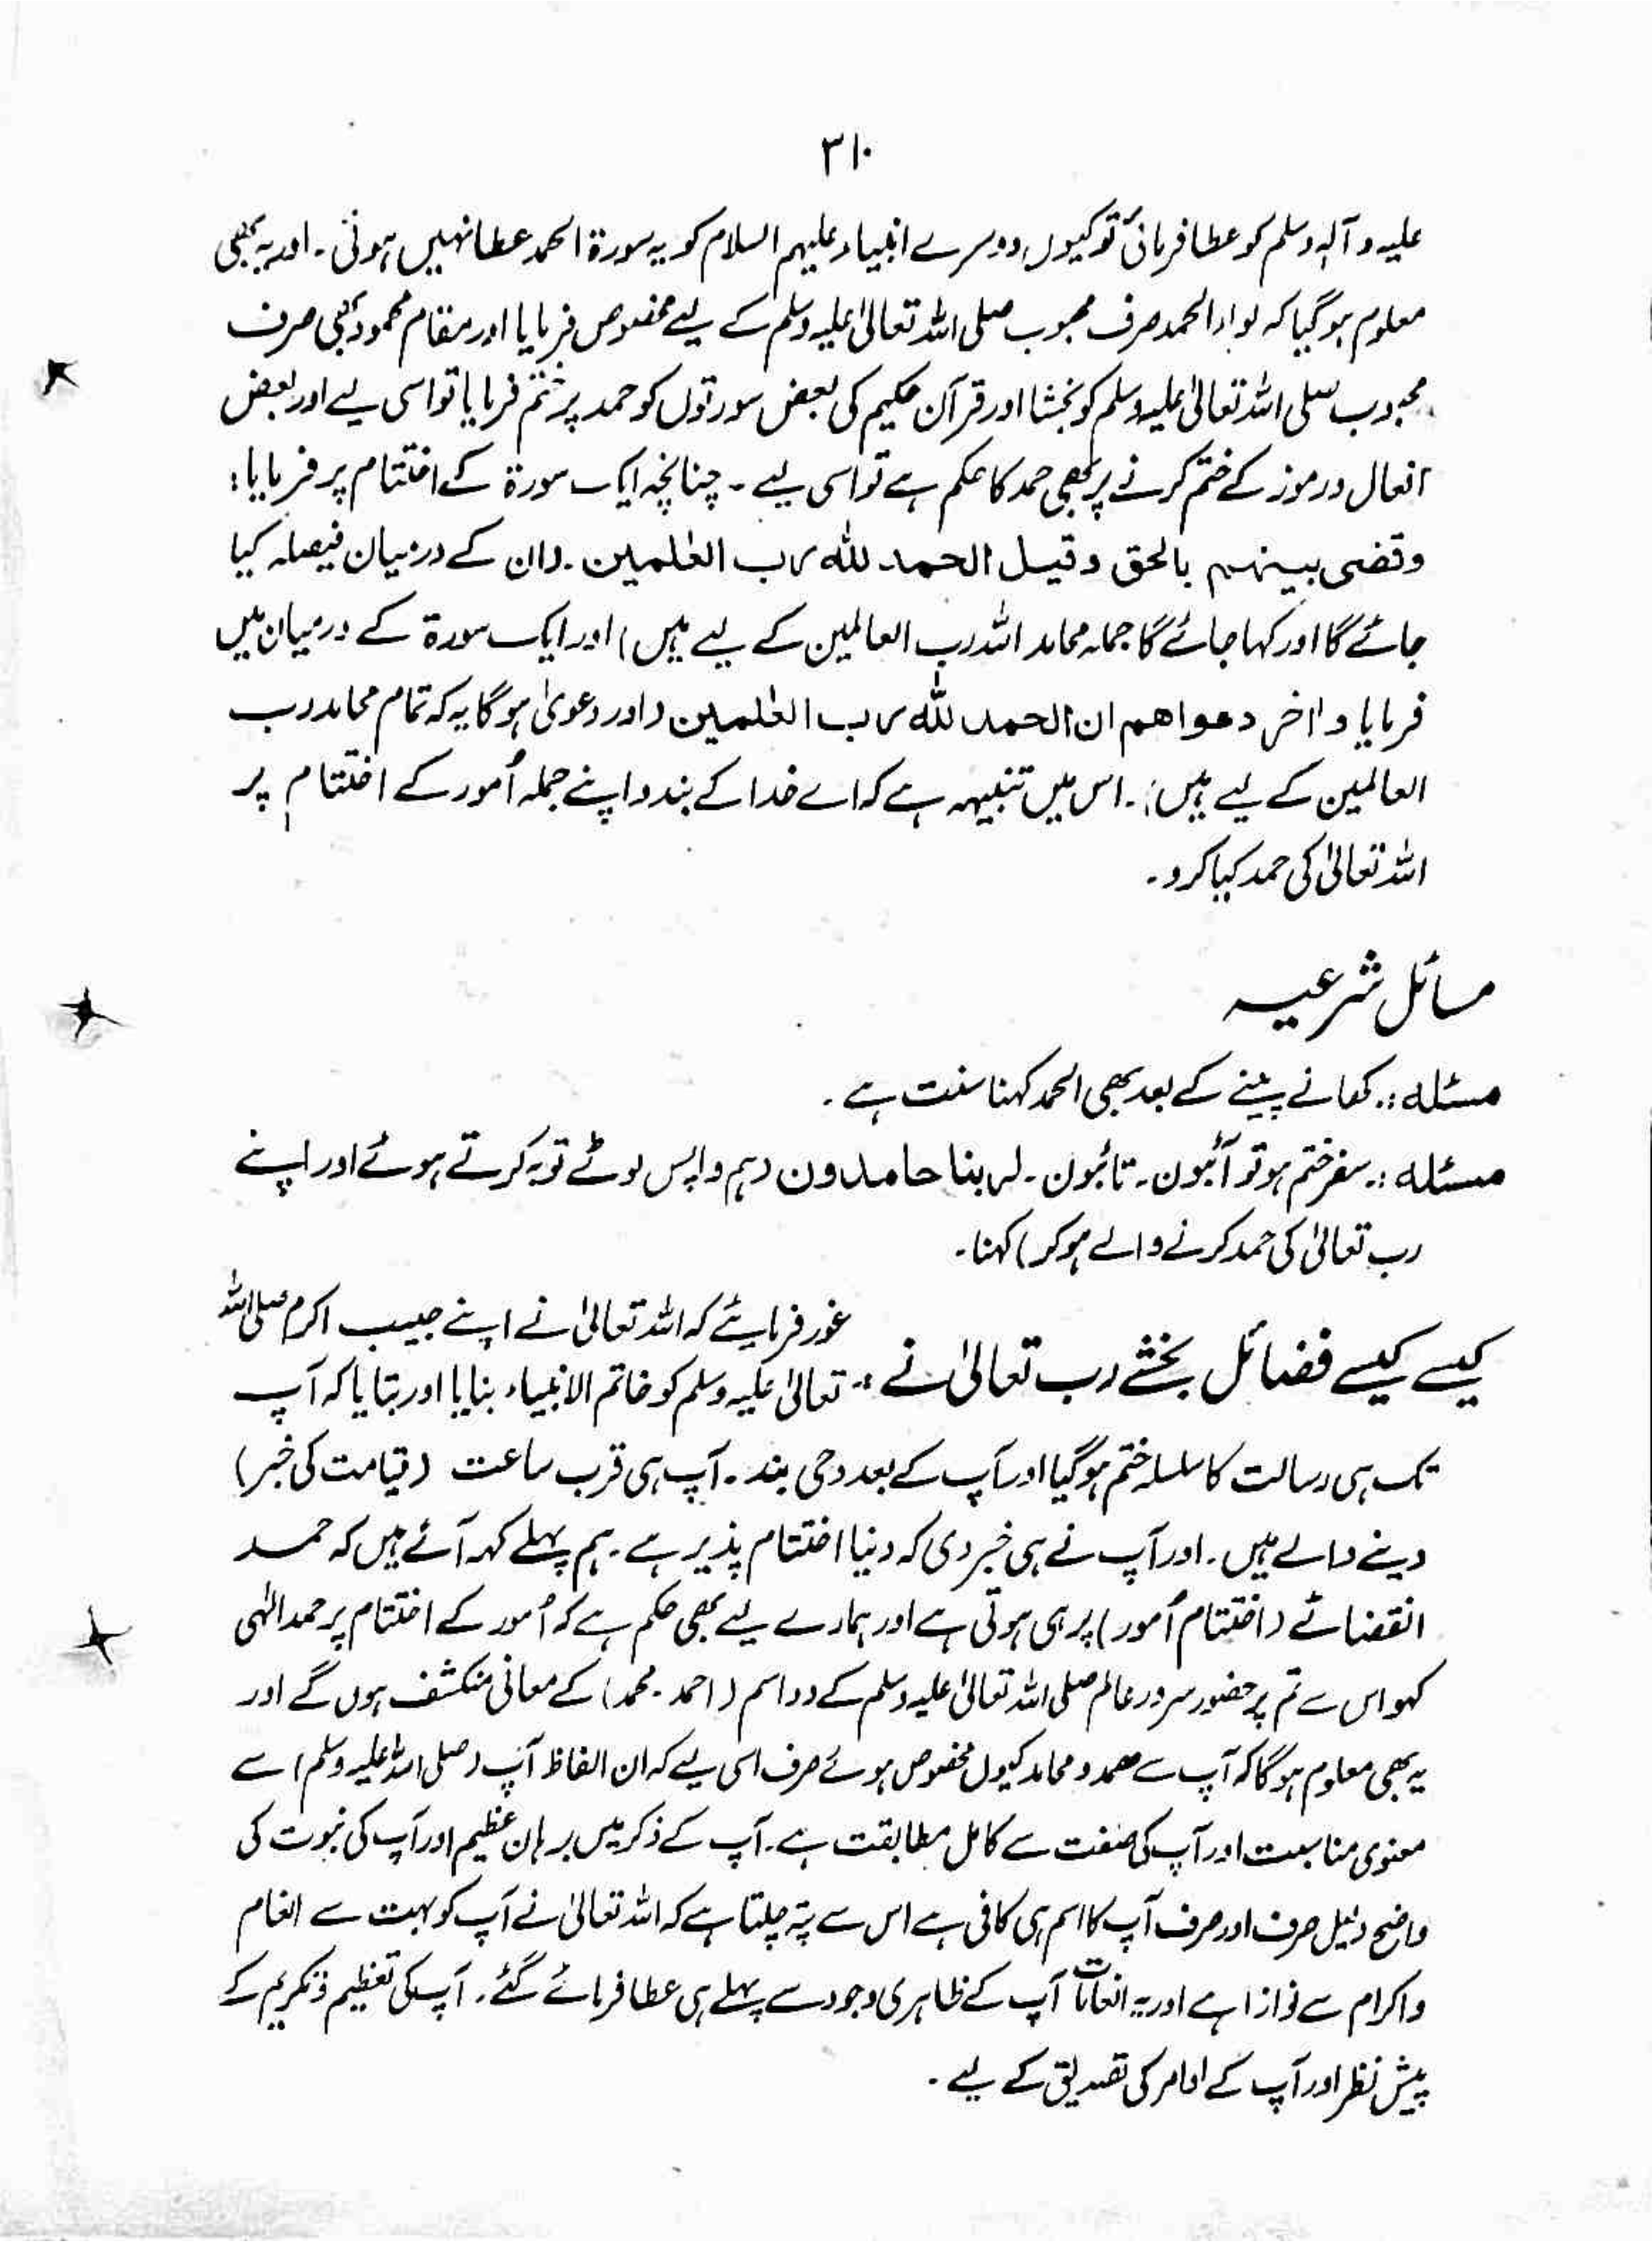 ۳۱۰
علیہ و آلہ وسلم کو عطا فرمائی تو کیوں، دوسرے انبیاء علیہم السلام کو یہ سورۃ الحمد عطا نہیں ہوئی۔ اور یہ بھی
معلوم ہو گیا کہ لواء الحمد صرف محبوب صلی اللہ تعالیٰ علیہ وسلم کے لیے مخصوص فرمایا اور مقام محمود بھی صرف
محبوب صلی اللہ تعالیٰ علیہ وسلم کو بخشا اور قرآن حکیم کی بعض سورتوں کو حمد پر ختم فرمایا تو اسی لیے اور بعض
افعال و رموز کے ختم کرنے پر بھی حمد کا حکم ہے تو اسی لیے۔ چنانچہ ایک سورۃ کے اختتام پر فرمایا:
وقضی بینہم بالحق وقیل الحمد للہ رب العٰلمین۔ (ان کے درمیان فیصلہ کیا
جائے گا اور کہا جائے گا جملہ محامد اللہ رب العالمین کے لیے ہیں) اور ایک سورۃ کے درمیان میں
فرمایا واٰخر دعواھم ان الحمد للہ رب العٰلمین (اور دعویٰ ہو گا یہ کہ تمام محامد رب
العالمین کے لیے ہیں)۔ اس میں تنبیہہ ہے کہ اے خدا کے بندو اپنے جملہ اُمور کے اختتام پر
اللہ تعالیٰ کی حمد کیا کرو۔
مسائل شرعیہ
مسئلہ :۔ کھانے پینے کے بعد بھی الحمد کہنا سنت ہے۔
مسئلہ :۔ سفر ختم ہو تو آئبون۔ تائبون۔ لربنا حامدون (ہم واپس لوٹے توبہ کرتے ہوئے اور اپنے
رب تعالیٰ کی حمد کرنے والے ہو کر) کہنا۔
کیسے کیسے فضائل بخشے رب تعالیٰ نے :۔ غور فرمایئے کہ اللہ تعالیٰ نے اپنے حبیب اکرم صلی اللہ
تعالیٰ علیہ وسلم کو خاتم الانبیاء بنایا اور بتایا کہ آپ
تک ہی رسالت کا سلسلہ ختم ہو گیا اور آپ کے بعد وحی بند۔ آپ ہی قرب ساعت (قیامت کی خبر)
دینے والے ہیں۔ اور آپ نے ہی خبر دی کہ دنیا اختتام پذیر ہے۔ ہم پہلے کہہ آئے ہیں کہ حمد
انقضائے (اختتام اُمور) پر ہی ہوتی ہے اور ہمارے لیے بھی حکم ہے کہ اُمور کے اختتام پر حمد الٰہی
کہو اس سے تم پر حضور سرور عالم صلی اللہ تعالیٰ علیہ وسلم کے دو اسم (احمد۔ محمد) کے معانی منکشف ہوں گے اور
یہ بھی معلوم ہو گا کہ آپ سے حمد و محامد کیوں مخصوص ہوئے صرف اسی لیے کہ ان الفاظ آپ (صلی اللہ علیہ وسلم) سے
معنوی مناسبت اور آپ کی صفت سے کامل مطابقت ہے۔ آپ کے ذکر میں برہان عظیم اور آپ کی نبوت کی
واضح دلیل صرف اور صرف آپ کا اسم ہی کافی ہے اس سے پتہ چلتا ہے کہ اللہ تعالیٰ نے آپ کو بہت سے انعام
واکرام سے نوازا ہے اور یہ انعامات آپ کے ظاہری وجود سے پہلے ہی عطا فرمائے گئے۔ آپ کی تعظیم و تکریم کے
پیش نظر اور آپ کے اوامر کی تصدیق کے لیے۔